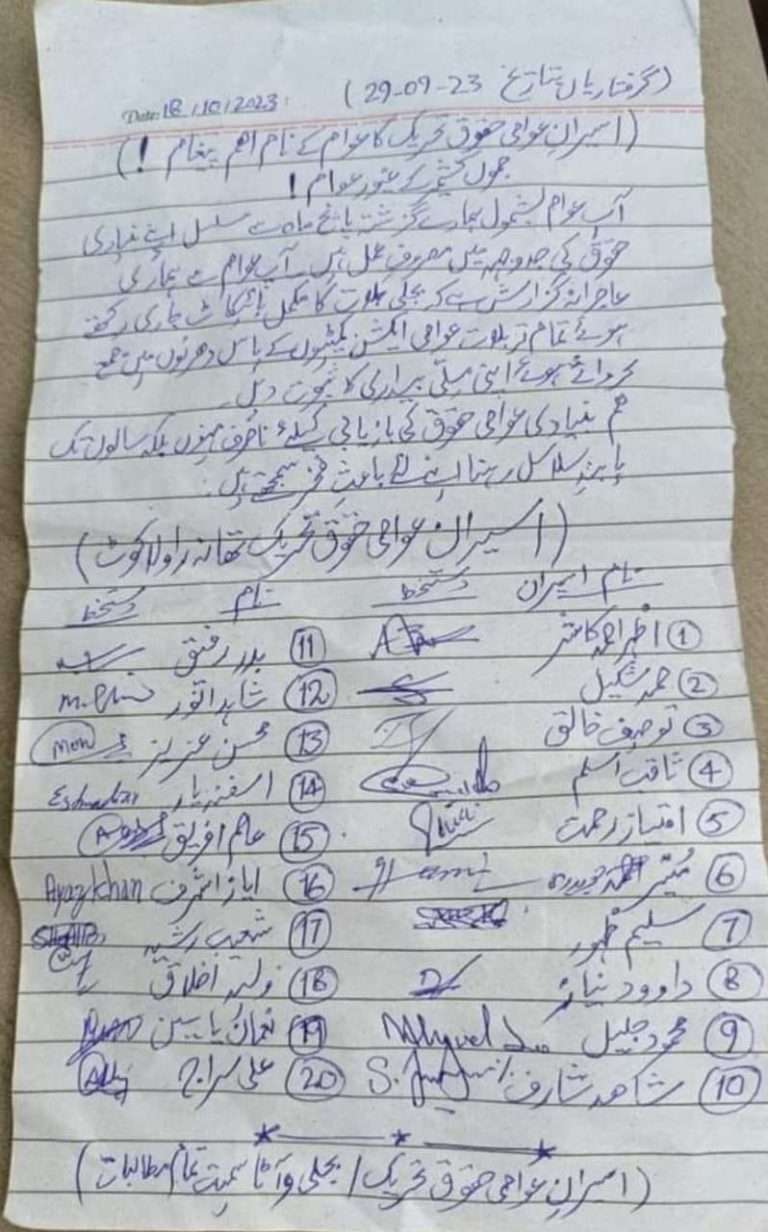 (گرفتاریاں بتاریخ 29-09-23)
Date: 18/10/2023
(اسیران عوامی حقوق تحریک کا عوام کے نام اہم پیغام !)
جموں کشمیر کے غیور عوام !
آپ عوام بشمول ہمارے گزشتہ پانچ ماہ سے مسلسل اپنے بنیادی
حقوق کی جدوجہد میں مصروف عمل ہیں۔ آپ عوام سے ہماری
عاجزانہ گزارش ہے کہ بجلی بلات کا مکمل بائیکاٹ جاری رکھتے
ہوئے تمام تر بلات عوامی ایکشن کمیٹیوں کے پاس دھرنوں میں جمع
کرواتے ہوئے اپنی ملی بیداری کا ثبوت دیں۔
ہم بنیادی عوامی حقوق کی بازیابی کیلئے ناصرف مہینوں بلکہ سالوں تک
پابند سلاسل رہنا اپنے لئے باعث فخر سمجھتے ہیں۔
(اسیران عوامی حقوق تحریک تھانہ راولاکوٹ)
نام اسیران دستخط نام دستخط
① اظہر احمد کاشر ⑪ بدر رفیق
② حمد شکیل ⑫ شاہد انور
③ توصیف خالق ⑬ محسن عزیز
④ ثاقب اسلم ⑭ اسفند یار
⑤ امتیاز رحمت ⑮ عاصم افریق
⑥ احمد ⑯ ایاز اشرف Ayaz khan
⑦ سلیم ظہور ⑰ شعیب رشید
⑧ داوود نیاز ⑱ ولید اخلاق
⑨ محمود جلیل ⑲ نعمان یاسین
⑩ شاہد شارف ⑳ علی سراج
(اسیران عوامی حقوق تحریک / بجلی و آٹا سمیت تمام مطالبات)